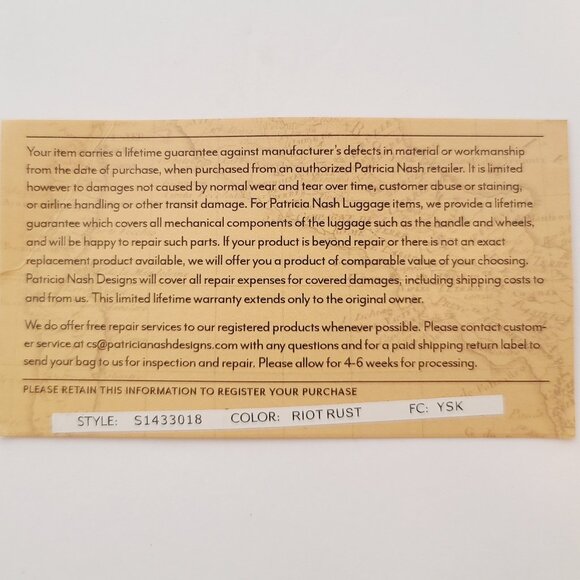 Your item carries a lifetime guarantee against manufacturer's defects in material or workmanship
from the date of purchase, when purchased from an authorized Patricia Nash retailer. It is limited
however to damages not caused by normal wear and tear over time, customer abuse or staining,
or airline handling or other transit damage. For Patricia Nash Luggage items, we provide a lifetime
guarantee which covers all mechanical components of the luggage such as the handle and wheels,
and will be happy to repair such parts. If your product is beyond repair or there is not an exact
replacement product available, we will offer you a product of comparable value of your choosing.
Patricia Nash Designs will cover all repair expenses for covered damages, including shipping costs to
and from us. This limited lifetime warranty extends only to the original owner.
We do offer free repair services to our registered products whenever possible. Please contact custom-
er service at cs@patricianashdesigns.com with any questions and for a paid shipping return label to
send your bag to us for inspection and repair. Please allow for 4-6 weeks for processing.
PLEASE RETAIN THIS INFORMATION TO REGISTER YOUR PURCHASE
STYLE: S1433018 COLOR: RIOT RUST FC: YSK